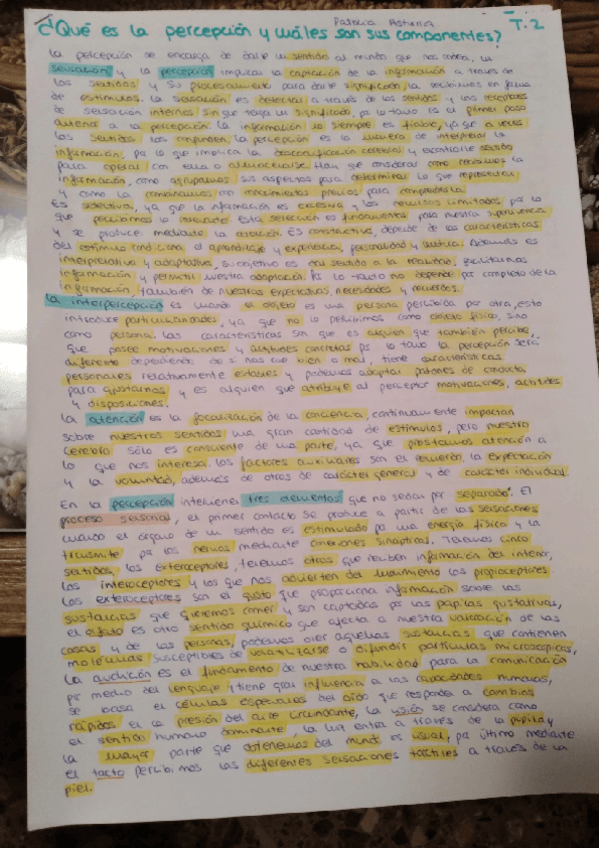 Patricia Asturia
¿Qué es la percepción y cuáles son sus componentes? T.2
La percepción se encarga de darle un sentido al mundo que nos rodea, la
sensación y la percepción implican la captación de la información a través de
los sentidos y su procesamiento para darle significado, la recibimos en forma
de estímulos. La sensación es detectar a través de los sentidos y los receptores
de sensación internos sin que tenga un significado, por lo tanto es el primer paso
anterior a la percepción. La información no siempre es fiable, ya que a veces
los sentidos los confunden, la percepción es la manera de interpretar la
información, por lo que implica la descodificación cerebral y encontrarle sentido
para operar con ella o almacenarla. Hay que considerar como recibimos la
información, como agrupamos sus aspectos para determinar lo que representan
y como la combinamos con conocimientos previos para comprenderla.
Es selectiva, ya que la información es excesiva y los recursos limitados por lo
que percibimos lo relevante. Esta selección es fundamental para nuestra supervivencia
y se produce mediante la atención. Es constructiva, depende de las características
del estímulo como el aprendizaje y experiencia, personalidad y cultura. Además es
interpretativa y adaptativa, su objetivo es dar sentido a la realidad, facilitarnos
información y permitir nuestra adaptación. Por lo tanto no depende por completo de la
información, también de nuestras expectativas, necesidades y recuerdos.
La interpercepción es cuando el objeto es una persona percibida por otra, esto
introduce particularidades, ya que no lo percibimos como objeto físico, sino
como persona. Las características son que es alguien que también percibe,
que posee motivaciones y actitudes concretas por lo tanto la percepción será
diferente dependiendo de si nos cae bien o mal, tiene características
personales relativamente estables y podemos adoptar patrones de conducta
para ajustarnos y es alguien que atribuye al perceptor motivaciones, actitudes
y disposiciones.
La atención es la focalización de la conciencia, continuamente impactan
sobre nuestros sentidos una gran cantidad de estímulos, pero nuestro
cerebro sólo es consciente de una parte, ya que prestamos atención a
lo que nos interesa. Los factores auxiliares son el la expectación
y la voluntad, además de otros de carácter general y de carácter individual.
En la percepción intervienen tres elementos que no se dan por separado. El
proceso sensorial, el primer contacto se produce a partir de las sensaciones
cuando el órgano de un sentido es estimulado por una energía física y la
transmite por los nervios mediante conexiones sinápticas. Tenemos cinco
sentidos, los exteroceptores, tenemos otros que reciben información del interior,
los interoceptores y los que nos advierten del movimiento los propioceptores.
Los exteroceptores son el gusto que proporciona información sobre las
sustancias que queremos comer y son captadas por las papilas gustativas,
el olfato es otro sentido químico que afecta a nuestra valoración de las
cosas y de las personas, podemos oler aquellas sustancias que contienen
moléculas susceptibles de volatilizarse o difundir partículas microscópicas,
La audición es el fundamento de nuestra habilidad para la comunicación
por medio del lenguaje y tiene gran influencia a las capacidades humanas,
se basa el células especiales del oído que responden a cambios
rápidos el la presión del aire circundante, la visión se considera como
el sentido humano dominante, la luz entra a través de la pupila y
la mayor parte que obtenemos del mundo es visual, por último mediante
el tacto percibimos las diferentes sensaciones táctiles a través de la
piel.